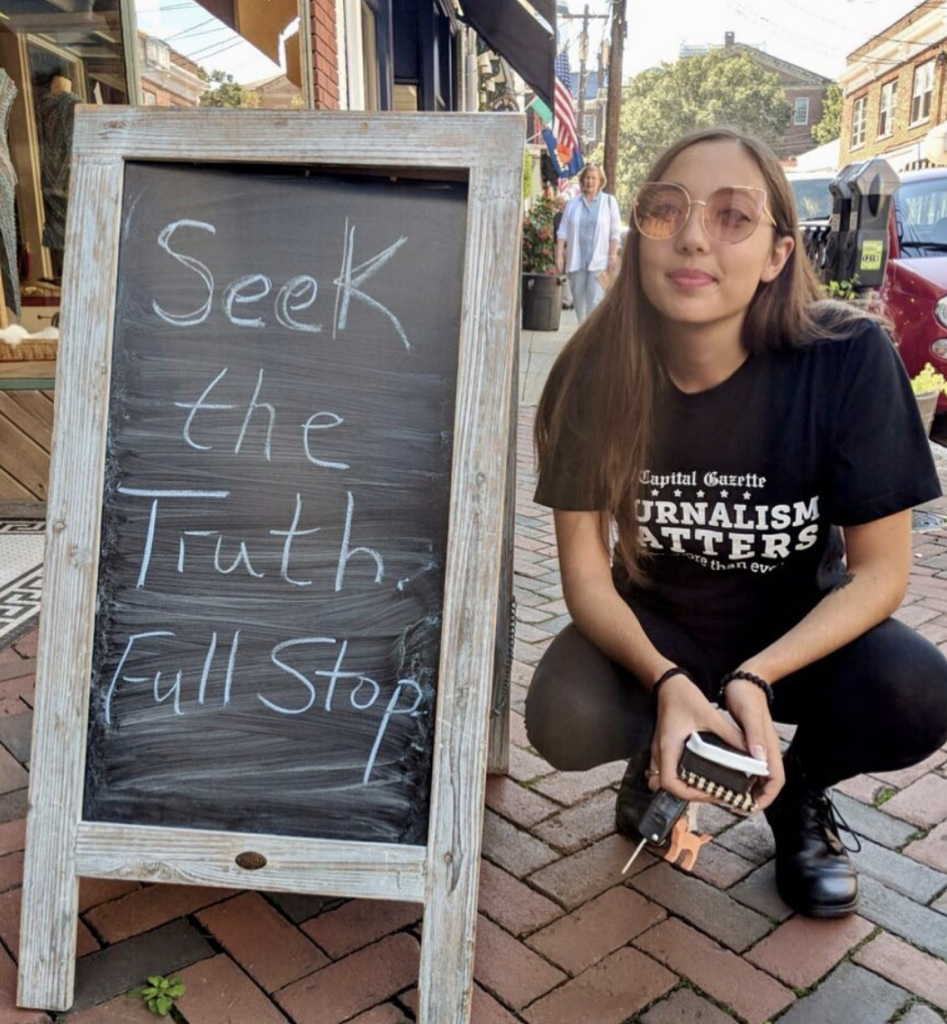 Seek
the
Truth.
Full Stop
Capital Gazette
URNALISM
ATTERS
than